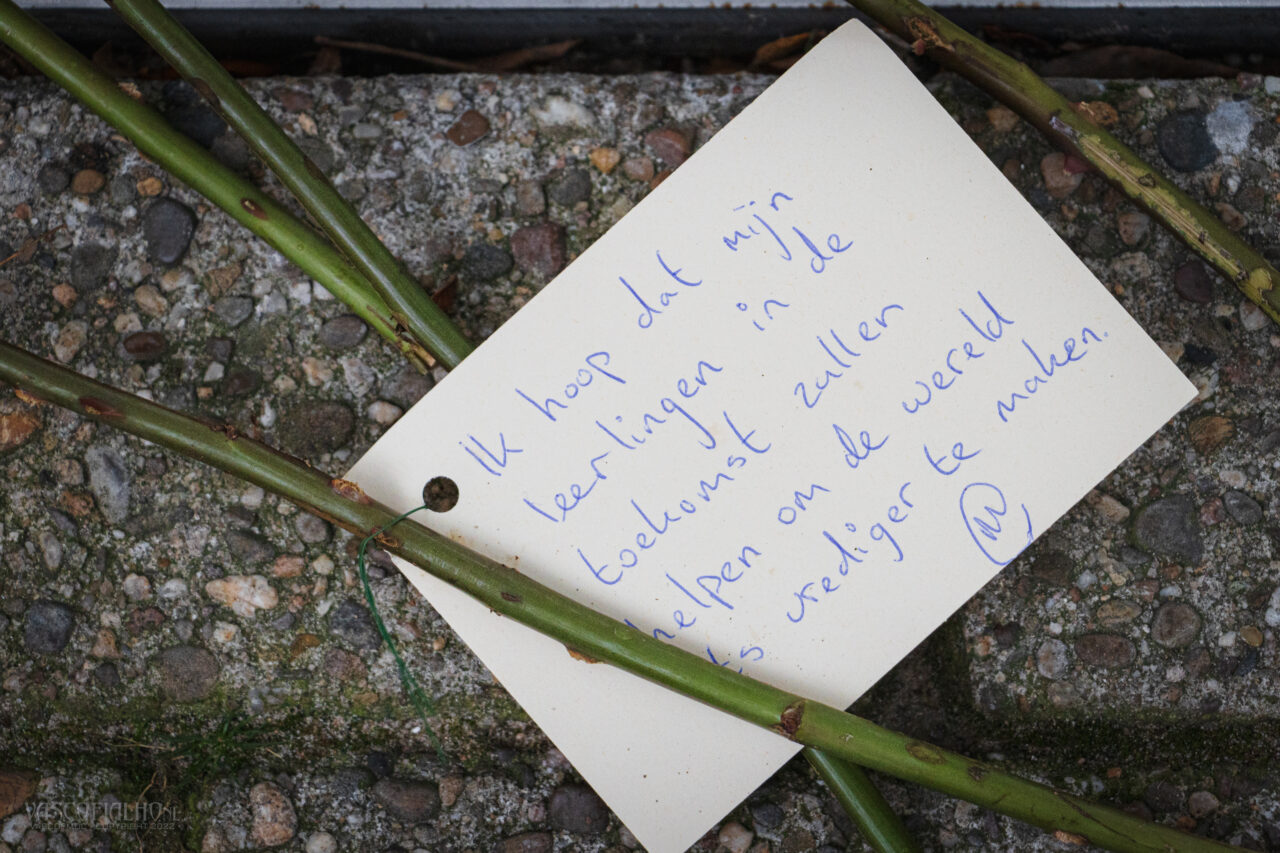 Ik hoop dat mijn
leerlingen in de
toekomst zullen
helpen om de wereld
vrediger te maken.
VASCOFIALHO